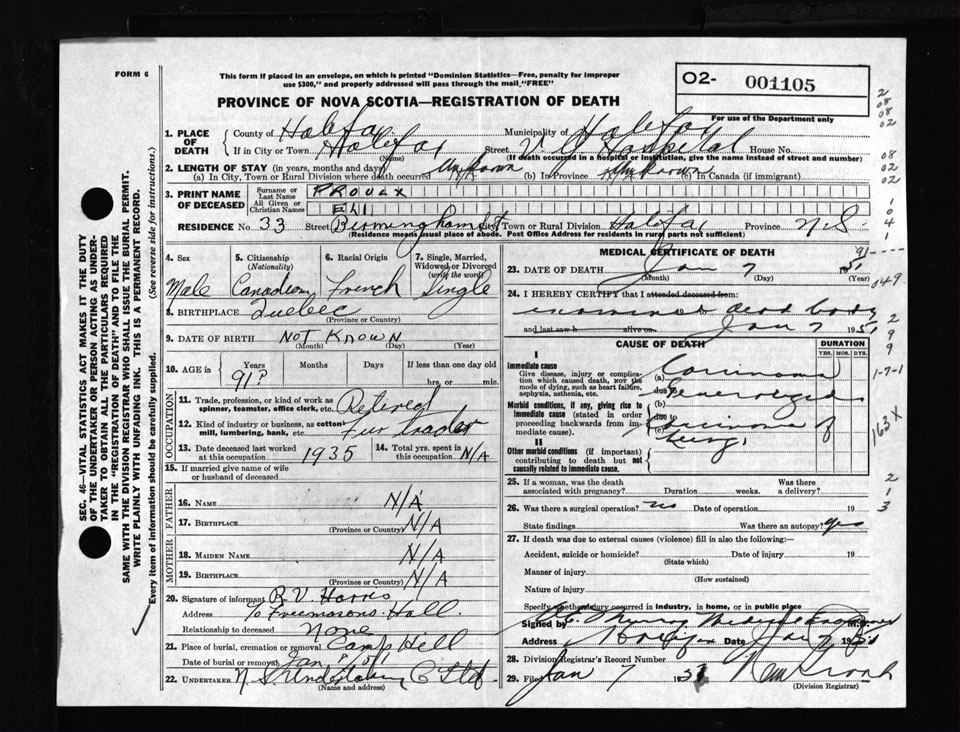 FORM 6
This form if placed in an envelope, on which is printed "Dominion Statistics—Free, penalty for improper
use $300," and properly addressed will pass through the mail "FREE"
O2- 001105
For use of the Department only
PROVINCE OF NOVA SCOTIA—REGISTRATION OF DEATH
1. PLACE OF DEATH { County of Halifax Municipality of Halifax
If in City or Town Halifax Street V G Hospital House No.
(Name) (If death occurred in a hospital or institution, give the name instead of street and number)
2. LENGTH OF STAY (in years, months and days)
(a) In City, Town or Rural Division where death occurred Unknown (b) In Province Unknown (c) In Canada (if immigrant)
3. PRINT NAME OF DECEASED { Surname or Last Name PROULX
All Given or Christian Names ELI
RESIDENCE No. 33 Street Birmingham St City Town or Rural Division Halifax Province N S
(Residence means usual place of abode. Post Office Address for residents in rural parts not sufficient)
4. Sex 5. Citizenship (Nationality) 6. Racial Origin 7. Single, Married, Widowed or Divorced (write the word)
Male Canadian French Single
8. BIRTHPLACE Quebec
(Province or Country)
9. DATE OF BIRTH NOT KNOWN
(Month) (Day) (Year)
10. AGE in { Years Months Days If less than one day
91? hrs. or min.
OCCUPATION
11. Trade, profession, or kind of work as spinner, teamster, office clerk, etc. Retired
12. Kind of industry or business, as cotton mill, lumbering, bank, etc. Fur Trader
13. Date deceased last worked at this occupation 1935 14. Total yrs. spent in this occupation N/A
15. If married give name of wife or husband of deceased
FATHER
16. NAME N/A
17. BIRTHPLACE N/A
(Province or Country)
MOTHER
18. MAIDEN NAME N/A
19. BIRTHPLACE N/A
(Province or Country)
20. Signature of informant R. V. Harris
Address c/o Freemasons Hall
Relationship to deceased None
21. Place of burial, cremation or removal Camp Hill
Date of burial or removal Jan
22. UNDERTAKER N. S. Undertaking C Ltd.
(Name and address)
MEDICAL CERTIFICATE OF DEATH
23. DATE OF DEATH Jan 7 1951
(Month) (Day) (Year)
24. I HEREBY CERTIFY that I attended deceased from:
examined dead body
and last saw h alive on Jan 7 1951
CAUSE OF DEATH DURATION
YRS. MOS. DYS.
I
Immediate cause
Give disease, injury or complication which caused death, NOT the mode of dying, such as heart failure, asphyxia, asthenia, etc.
(a) Carcinoma
due to Generalized
Morbid conditions, if any, giving rise to immediate cause (stated in order proceeding backwards from immediate cause).
(b)
due to
(c) carcinoma of
lung
II
Other morbid conditions (if important) contributing to death but not causally related to immediate cause.
25. If a woman, was the death associated with pregnancy? Duration weeks. Was there a delivery?
26. Was there a surgical operation? no Date of operation 19
State findings Was there an autopsy? yes
27. If death was due to external causes (violence) fill in also the following:—
Accident, suicide or homicide? Date of injury 19
(State which)
Manner of injury
(How sustained)
Nature of injury
Specify whether injury occurred in industry, in home, or in public place
Signed by Medical Examiner M.D.
Address Halifax Date Jan 7 1951
28. Division Registrar's Record Number
29. Filed Jan 7 1951
(Division Registrar)
SEC. 46—VITAL STATISTICS ACT MAKES IT THE DUTY
OF THE UNDERTAKER OR PERSON ACTING AS UNDERTAKER
TO OBTAIN ALL THE PARTICULARS REQUIRED
IN THE "REGISTRATION OF DEATH" AND TO FILE THE
SAME WITH THE DIVISION REGISTRAR WHO SHALL ISSUE THE BURIAL PERMIT.
WRITE PLAINLY WITH UNFADING INK. THIS IS A PERMANENT RECORD.
Every item of information should be carefully supplied. (See reverse side for instructions.)
2
08
08
02
08
02
02
1
0
4
1
91---
049
2
9
9
1-7-1
163X
2
1
3